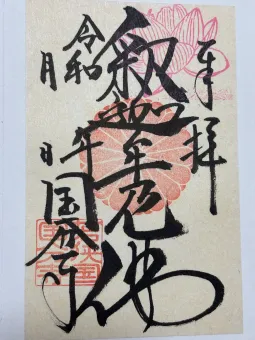 奉拝
釈迦牟尼佛
令和年
月日
国分寺